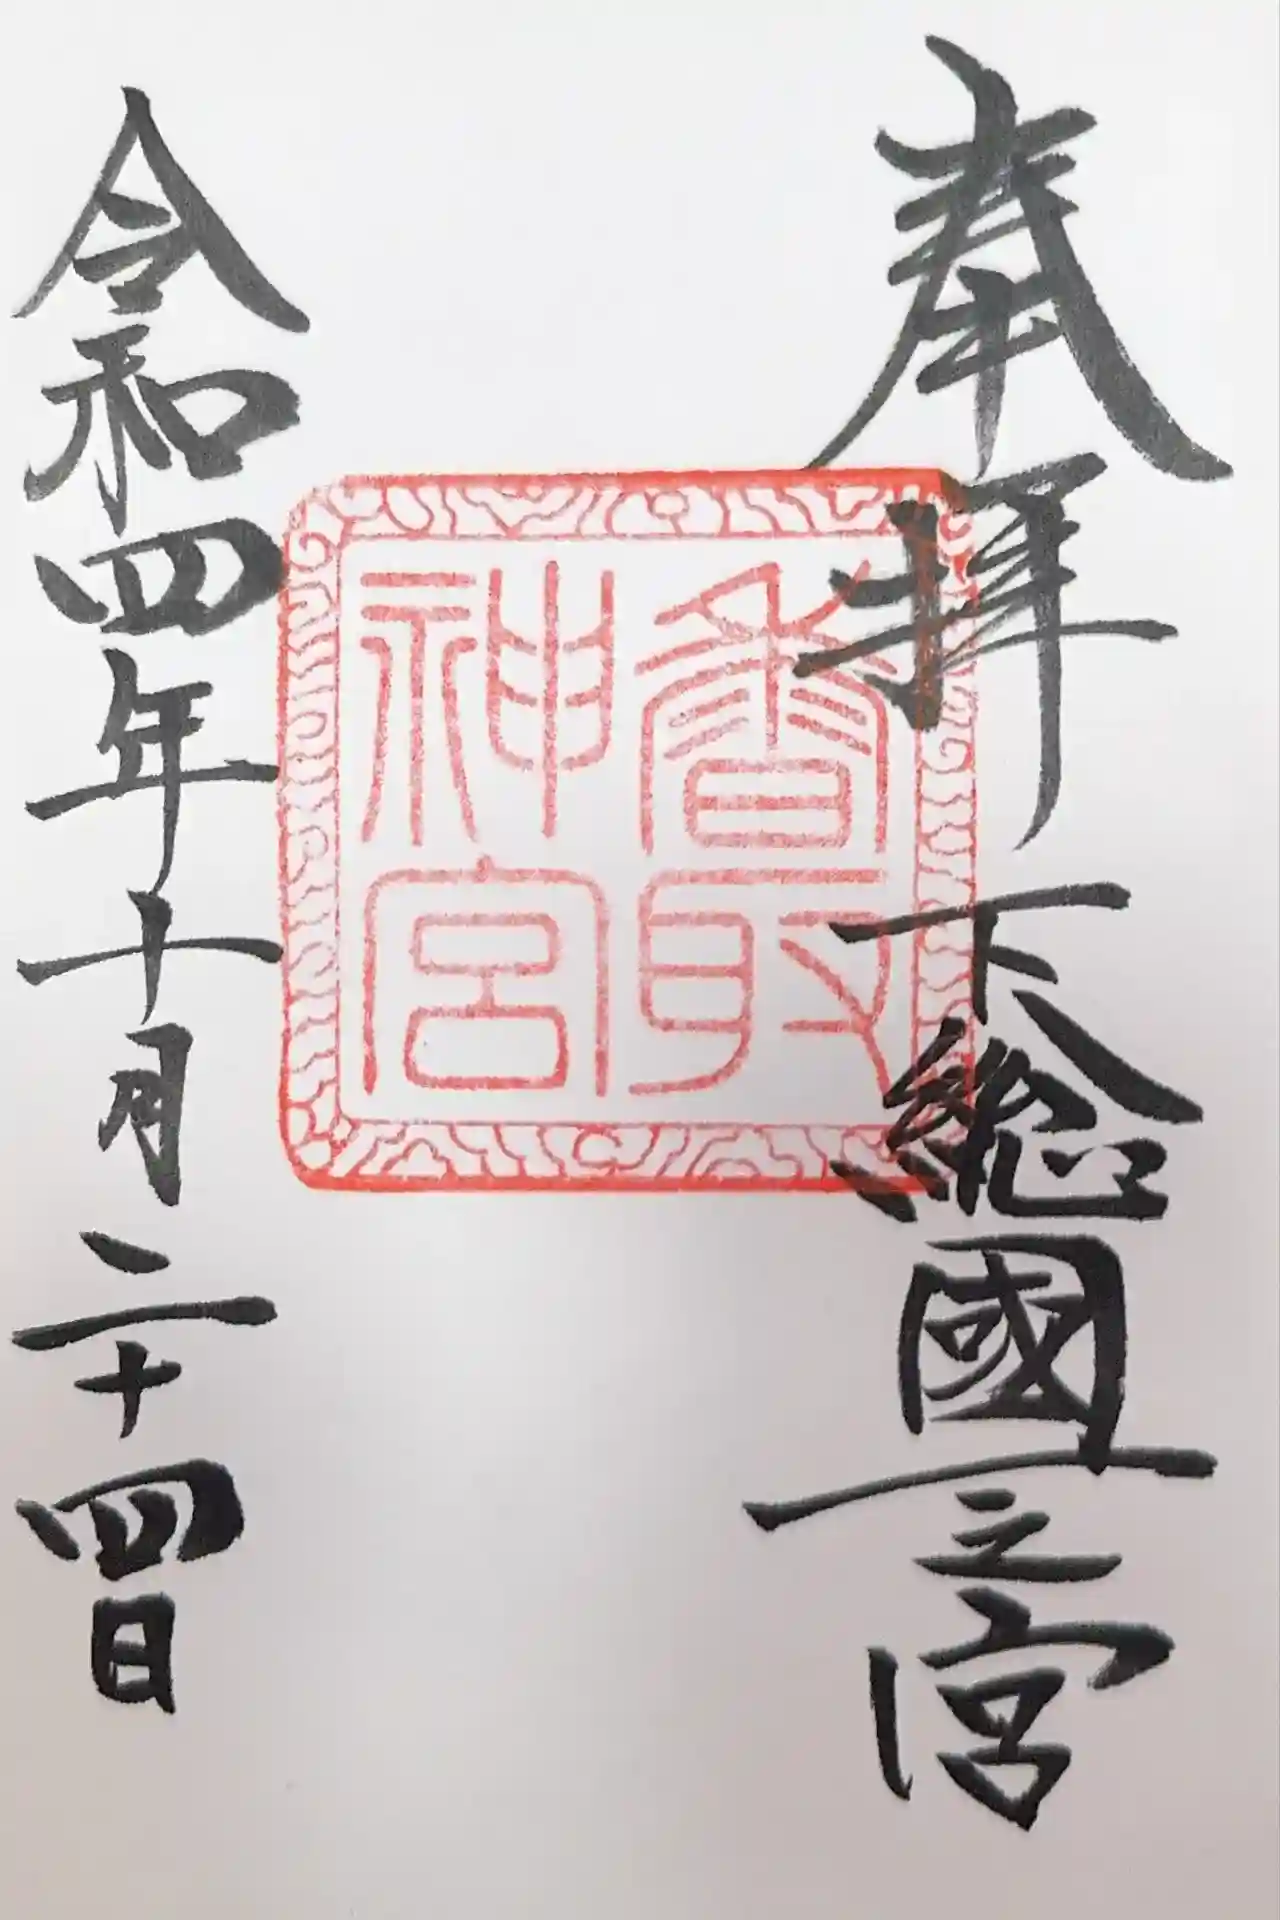 奉拝 下総國一之宮
香取
神宮
令和四年十月二十四日